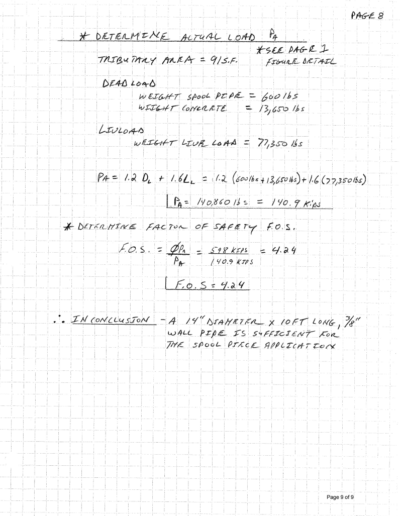 PAGE 8
* DETERMINE ACTUAL LOAD PA
* SEE PAGE 1
TRIBUTARY AREA = 91 S.F. FIGURE DETAIL
DEAD LOAD
WEIGHT SPOOL PIPE = 600 lbs
WEIGHT CONCRETE = 13,650 lbs
LIVE LOAD
WEIGHT LIVE LOAD = 77,350 lbs
PA = 1.2 DL + 1.6 LL = 1.2 (600 lbs + 13,650 lbs) + 1.6 (77,350 lbs)
PA = 140,860 lbs = 140.9 Kips
* DETERMINE FACTOR OF SAFETY F.O.S.
F.O.S. = ØPn / PA = 598 KIPS / 140.9 KIPS = 4.24
F.O.S = 4.24
∴ IN CONCLUSION - A 14" DIAMETER x 10FT LONG, 3/8"
WALL PIPE IS SUFFICIENT FOR
THE SPOOL PIECE APPLICATION
Page 9 of 9